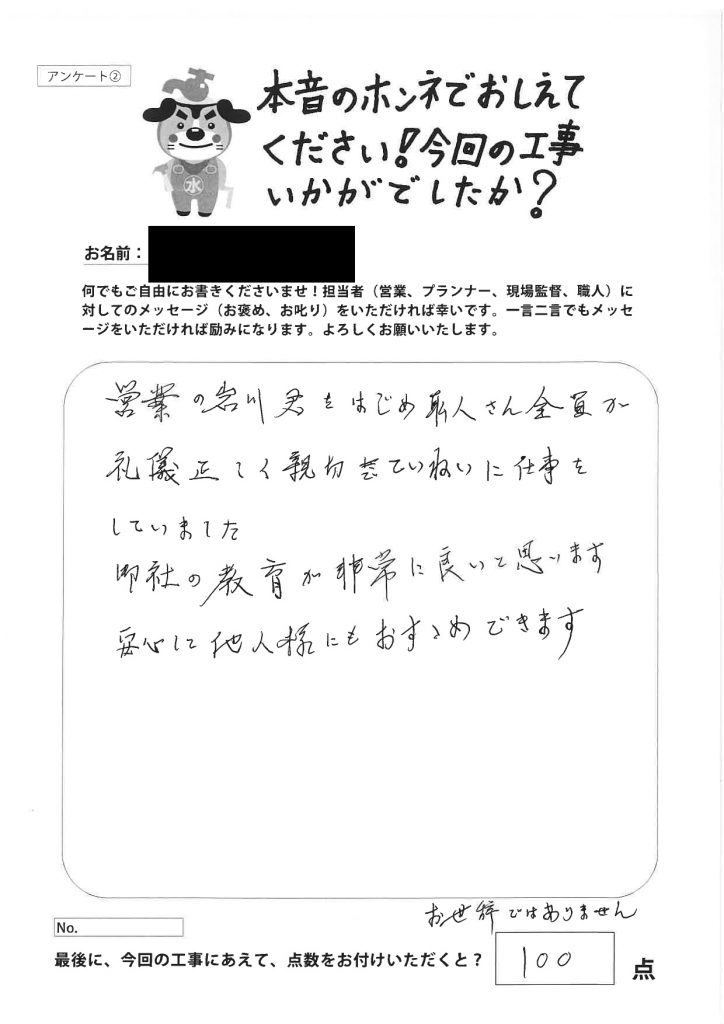 アンケート②
本音のホンネでおしえて
ください!今回の工事
いかがでしたか?
水
お名前:
何でもご自由にお書きくださいませ!担当者(営業、プランナー、現場監督、職人)に
対してのメッセージ(お褒め、お叱り)をいただければ幸いです。一言二言でもメッセ
ージをいただければ励みになります。よろしくお願いいたします。
営業の岩川君をはじめ職人さん全員が
礼儀正しく親切ていねいに仕事を
していました
御社の教育が非常に良いと思います
安心して他人様にもおすゝめできます
お世辞ではありません
No.
最後に、今回の工事にあえて、点数をお付けいただくと?
100
点